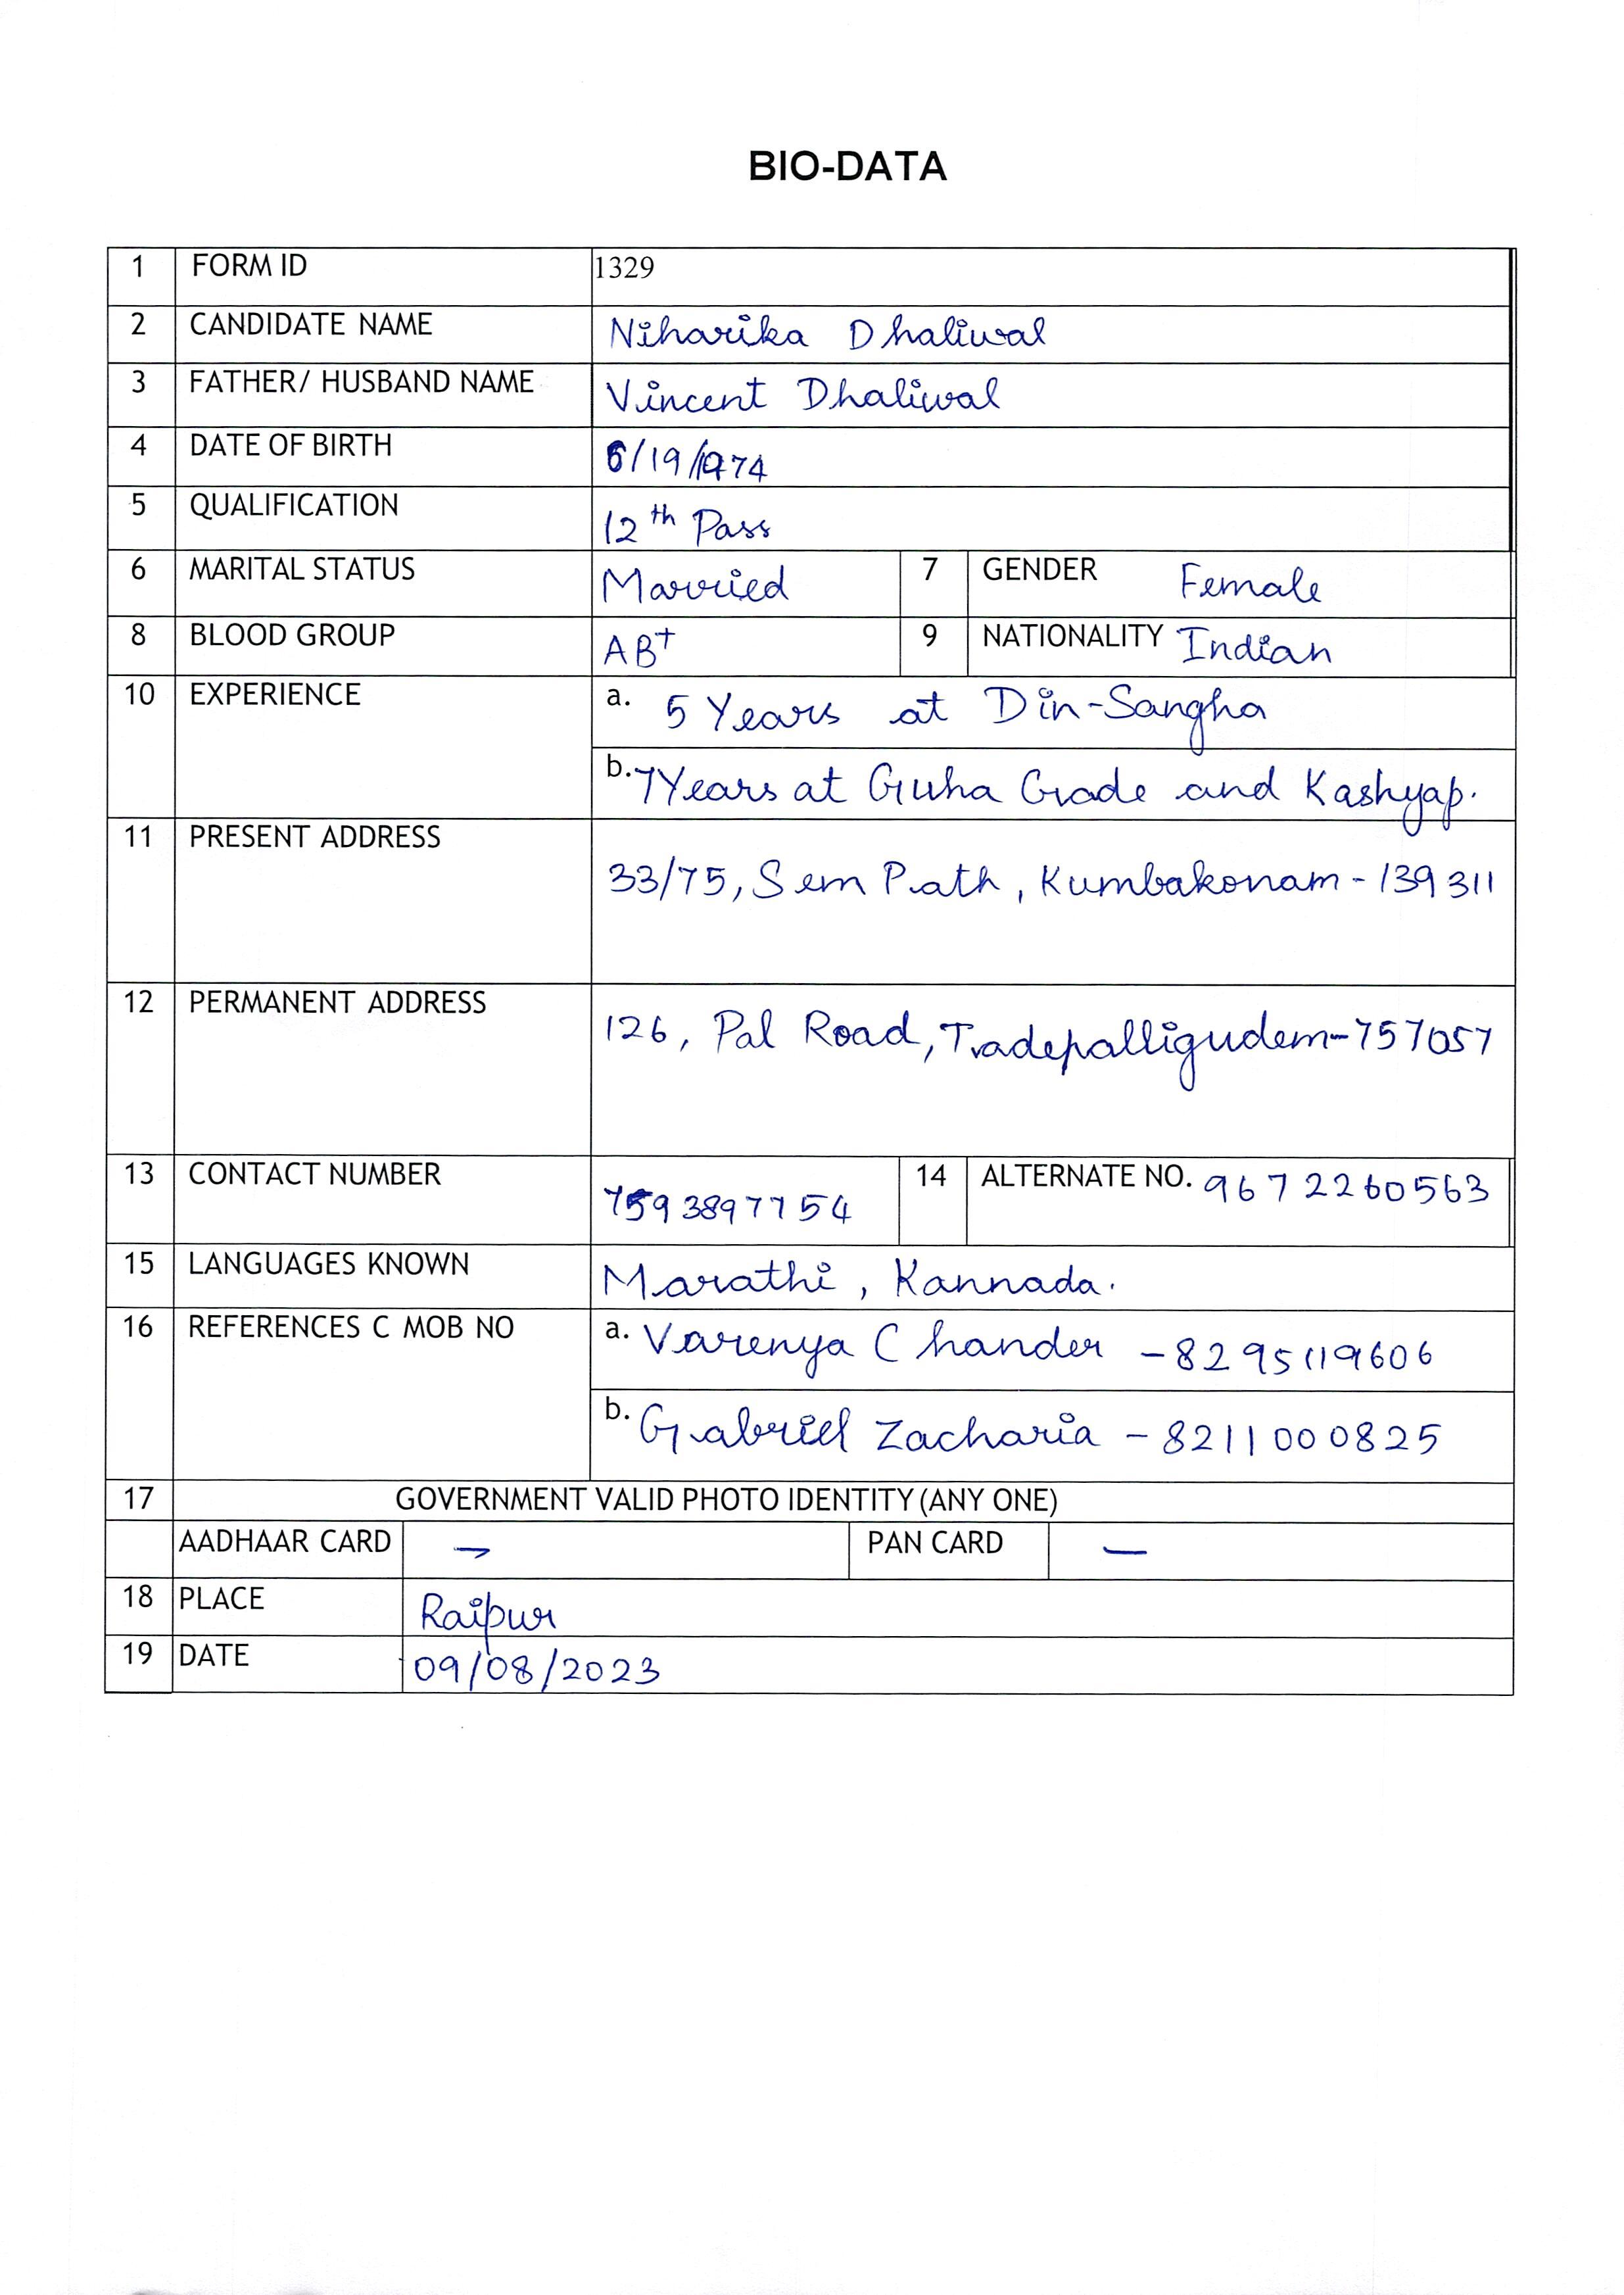 BIO-DATA
1 FORM ID 1329
2 CANDIDATE NAME Niharika Dhaliwal
3 FATHER/ HUSBAND NAME Vincent Dhaliwal
4 DATE OF BIRTH 6/19/1974
5 QUALIFICATION 12th Pass
6 MARITAL STATUS Married 7 GENDER Female
8 BLOOD GROUP AB+ 9 NATIONALITY Indian
10 EXPERIENCE a. 5 Years at Din-Sangha
b. 7 Years at Guha Grade and Kashyap.
11 PRESENT ADDRESS
33/75, Sem Path, Kumbakonam - 139311
12 PERMANENT ADDRESS
126, Pal Road, Tadepalligudem-757057
13 CONTACT NUMBER 7593897754 14 ALTERNATE NO. 9672260563
15 LANGUAGES KNOWN Marathi, Kannada.
16 REFERENCES C MOB NO a. Varenya Chander - 8295119606
b. Gabriel Zacharia - 8211000825
17 GOVERNMENT VALID PHOTO IDENTITY (ANY ONE)
AADHAAR CARD - PAN CARD -
18 PLACE Raipur
19 DATE 09/08/2023